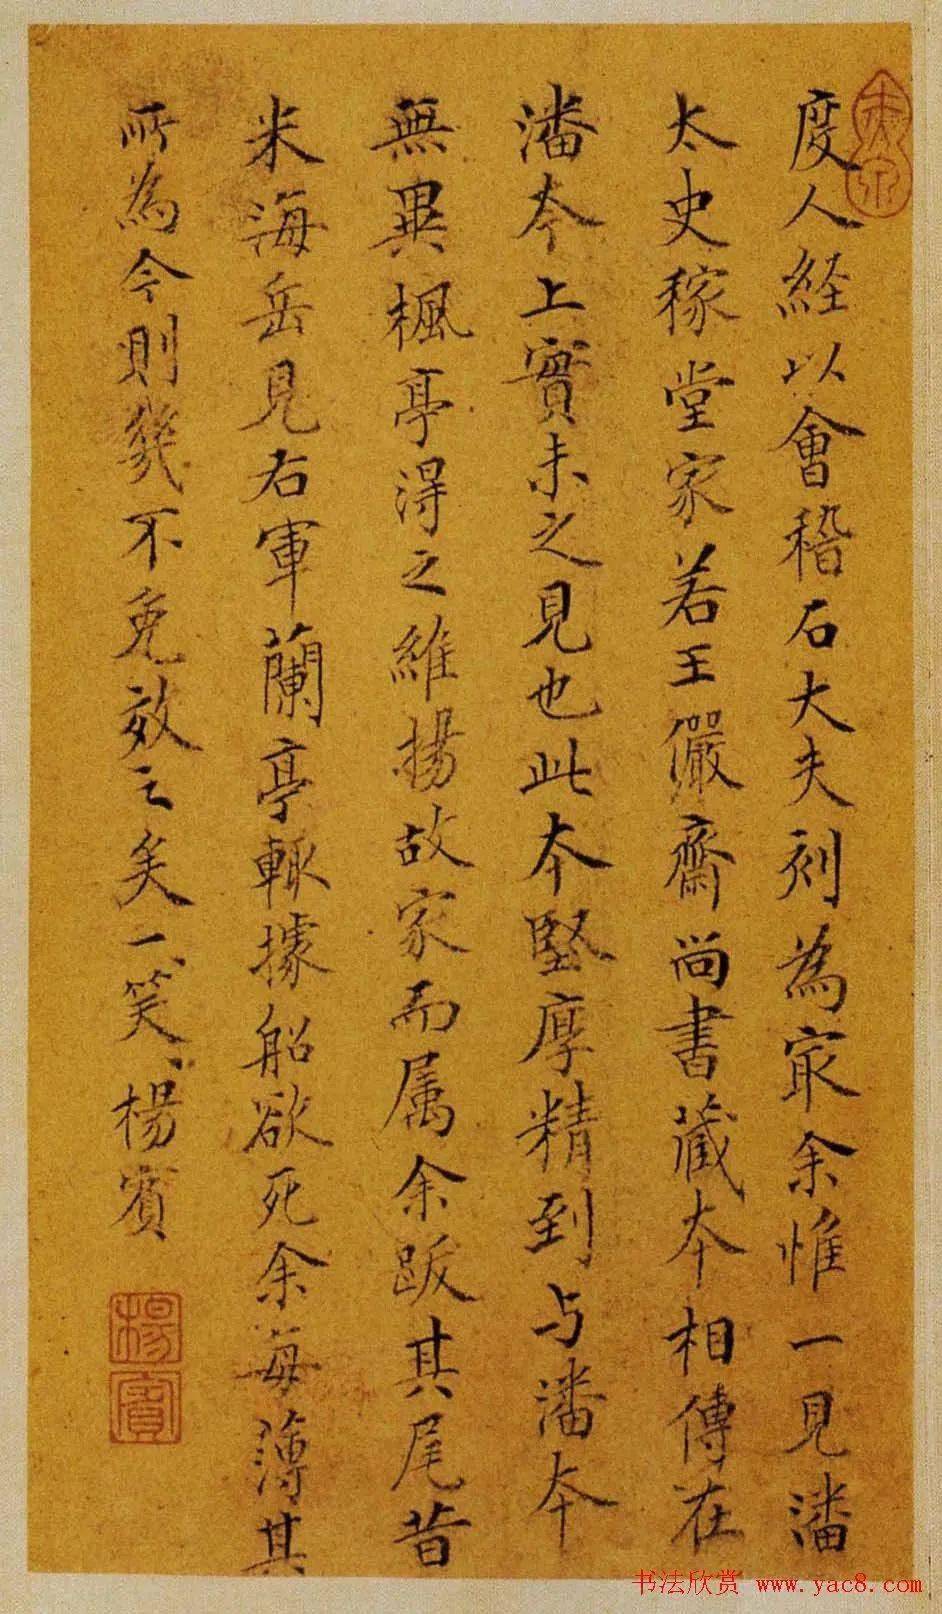 度人経以會稽石大夫刻為冣余惟一見潘
太史稼堂家若王儼齋尚書藏本相傳在
潘本上實未之見也此本堅厚精到与潘本
無異楓亭得之維揚故家而属余跋其尾昔
米海岳見右軍蘭亭輒據船欲死余每薄其
所為今則幾不免效之矣一笑楊賓
楊賓
书法欣赏 www.yac8.com